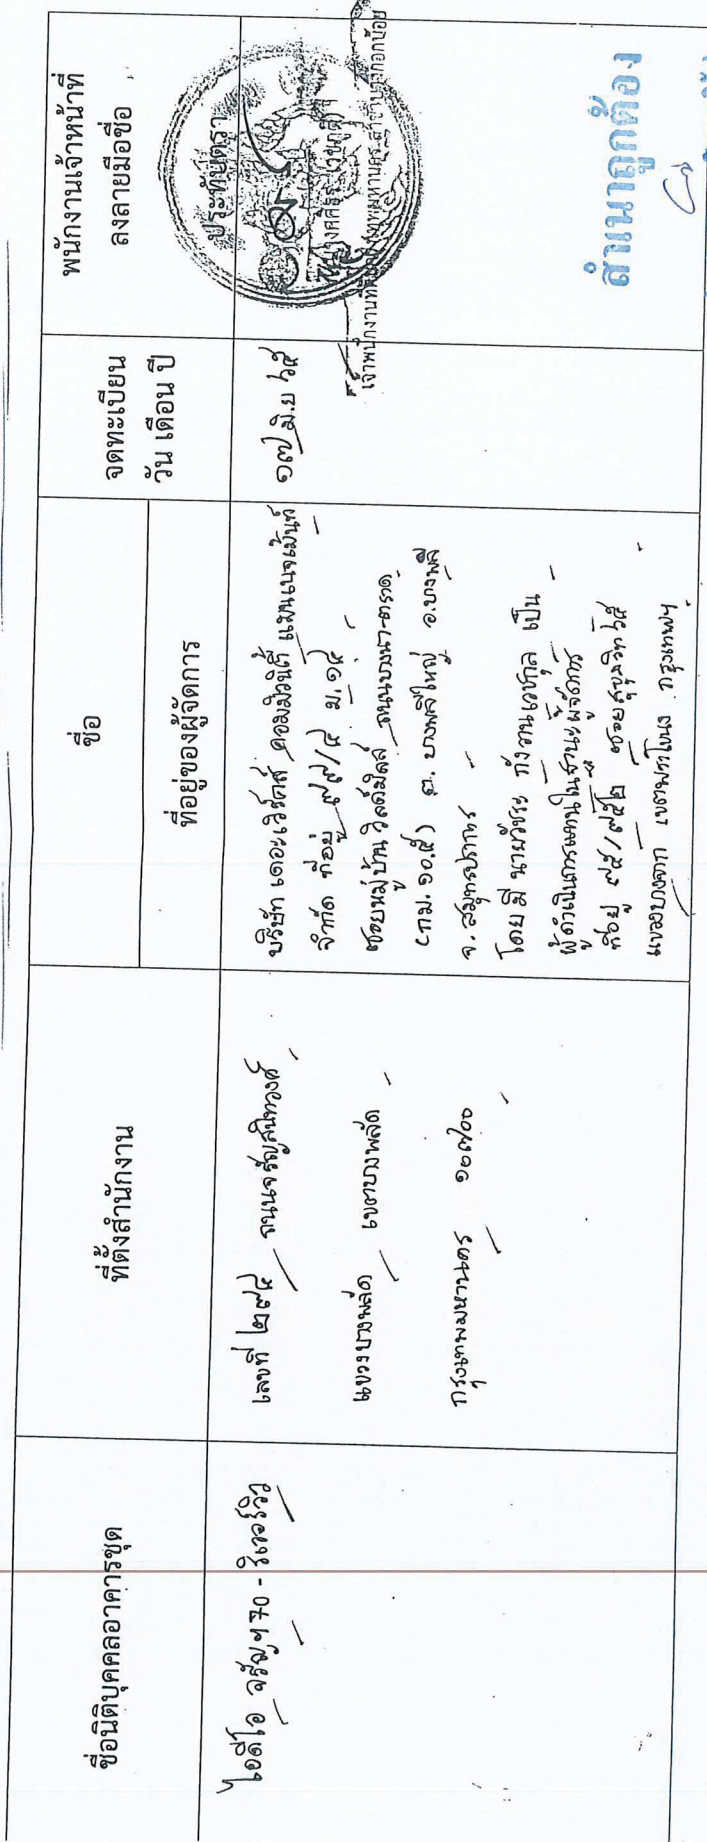 ชื่อนิติบุคคลอาคารชุด
ที่ตั้งสำนักงาน
ชื่อ
ที่อยู่ของผู้จัดการ
จดทะเบียน
วัน เดือน ปี
พนักงานเจ้าหน้าที่
ลงลายมือชื่อ
ประทับตรา
ไอดีโอ จรัญฯ 70 - ริเวอร์วิว
เลขที่ ๒๗๔ ถนนจรัญสนิทวงศ์
แขวงบางพลัด เขตบางพลัด
กรุงเทพมหานคร ๑๐๗๐๐
บริษัท เดอะเวิร์คส์ คอมมิวนิตี้ แมนเนจเม้นท์
จำกัด ที่อยู่ ๗๗/๔ ม.๑๔
ซอยหมู่บ้านวิลด์มิลล์ ถนนบางนา-ตราด
(กม. ๑๐.๕) ต. บางพลีใหญ่ อ.บางพลี
จ. สมุทรปราการ
โดยมี นายวัชระ กังวานเวชกุล เป็น
ผู้ดำเนินการแทนในฐานะผู้จัดการ
ที่อยู่ ๙๕/๗๕๒ ซอยสุขุมวิท ๖๕
แขวงบางจาก เขตพระโขนง กรุงเทพฯ
๑๗ มิ.ย ๖๕
สำเนาถูกต้อง